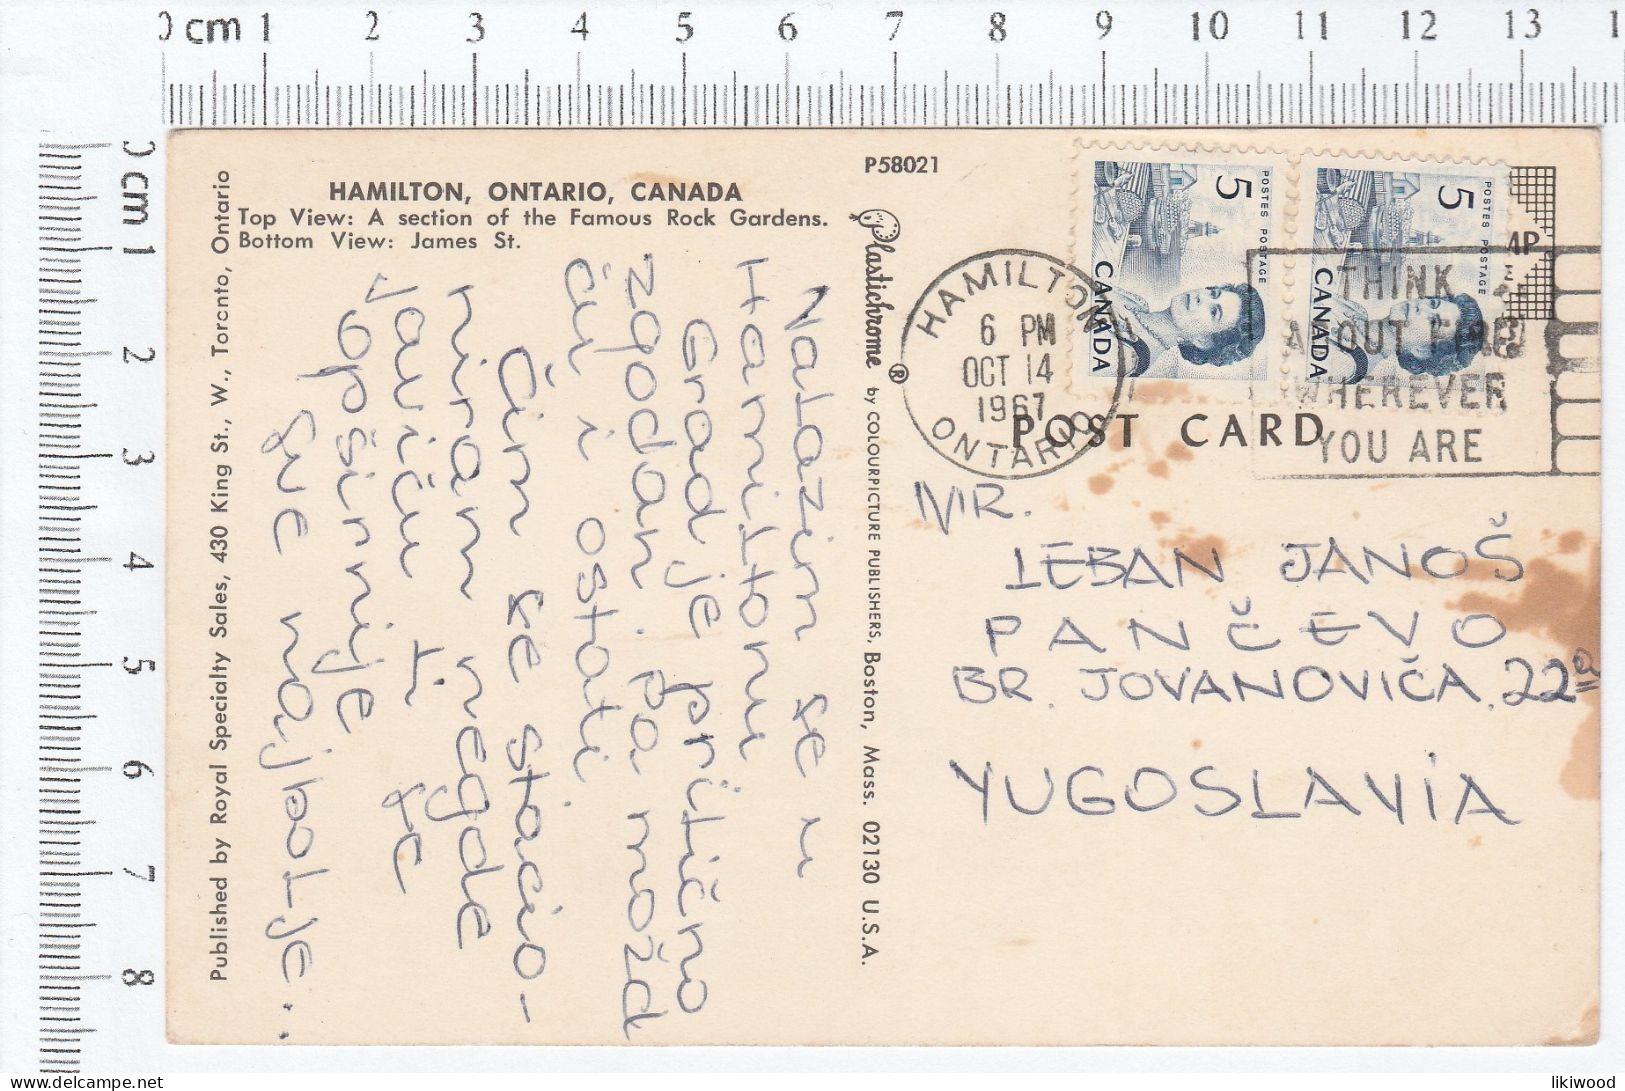 0 cm 1 2 3 4 5 6 7 8 9 10 11 12 13 1
0 cm 1 2 3 4 5 6 7 8
HAMILTON, ONTARIO, CANADA
Top View: A section of the Famous Rock Gardens.
Bottom View: James St.
Published by Royal Specialty Sales, 430 King St., W., Toronto, Ontario
Nalazim se u
Hamiltonu
Grad je prilično
zgodan, pa možd
ću i ostati
Čim se stacio-
niram negde
javiću ti se
opširnije
Sve najbolje..
P58021
Plastichrome ® by COLOURPICTURE PUBLISHERS, Boston, Mass. 02130 U.S.A.
HAMILTON
6 PM
OCT 14
1967
ONTARIO
5
POSTES POSTAGE
CANADA
5
POSTES POSTAGE
CANADA
MP
THINK
ABOUT FIRE
WHEREVER
YOU ARE
POST CARD
MR.
LEBAN JANOŠ
PANČEVO
BR. JOVANOVIČA, 22a
YUGOSLAVIA
likiwood